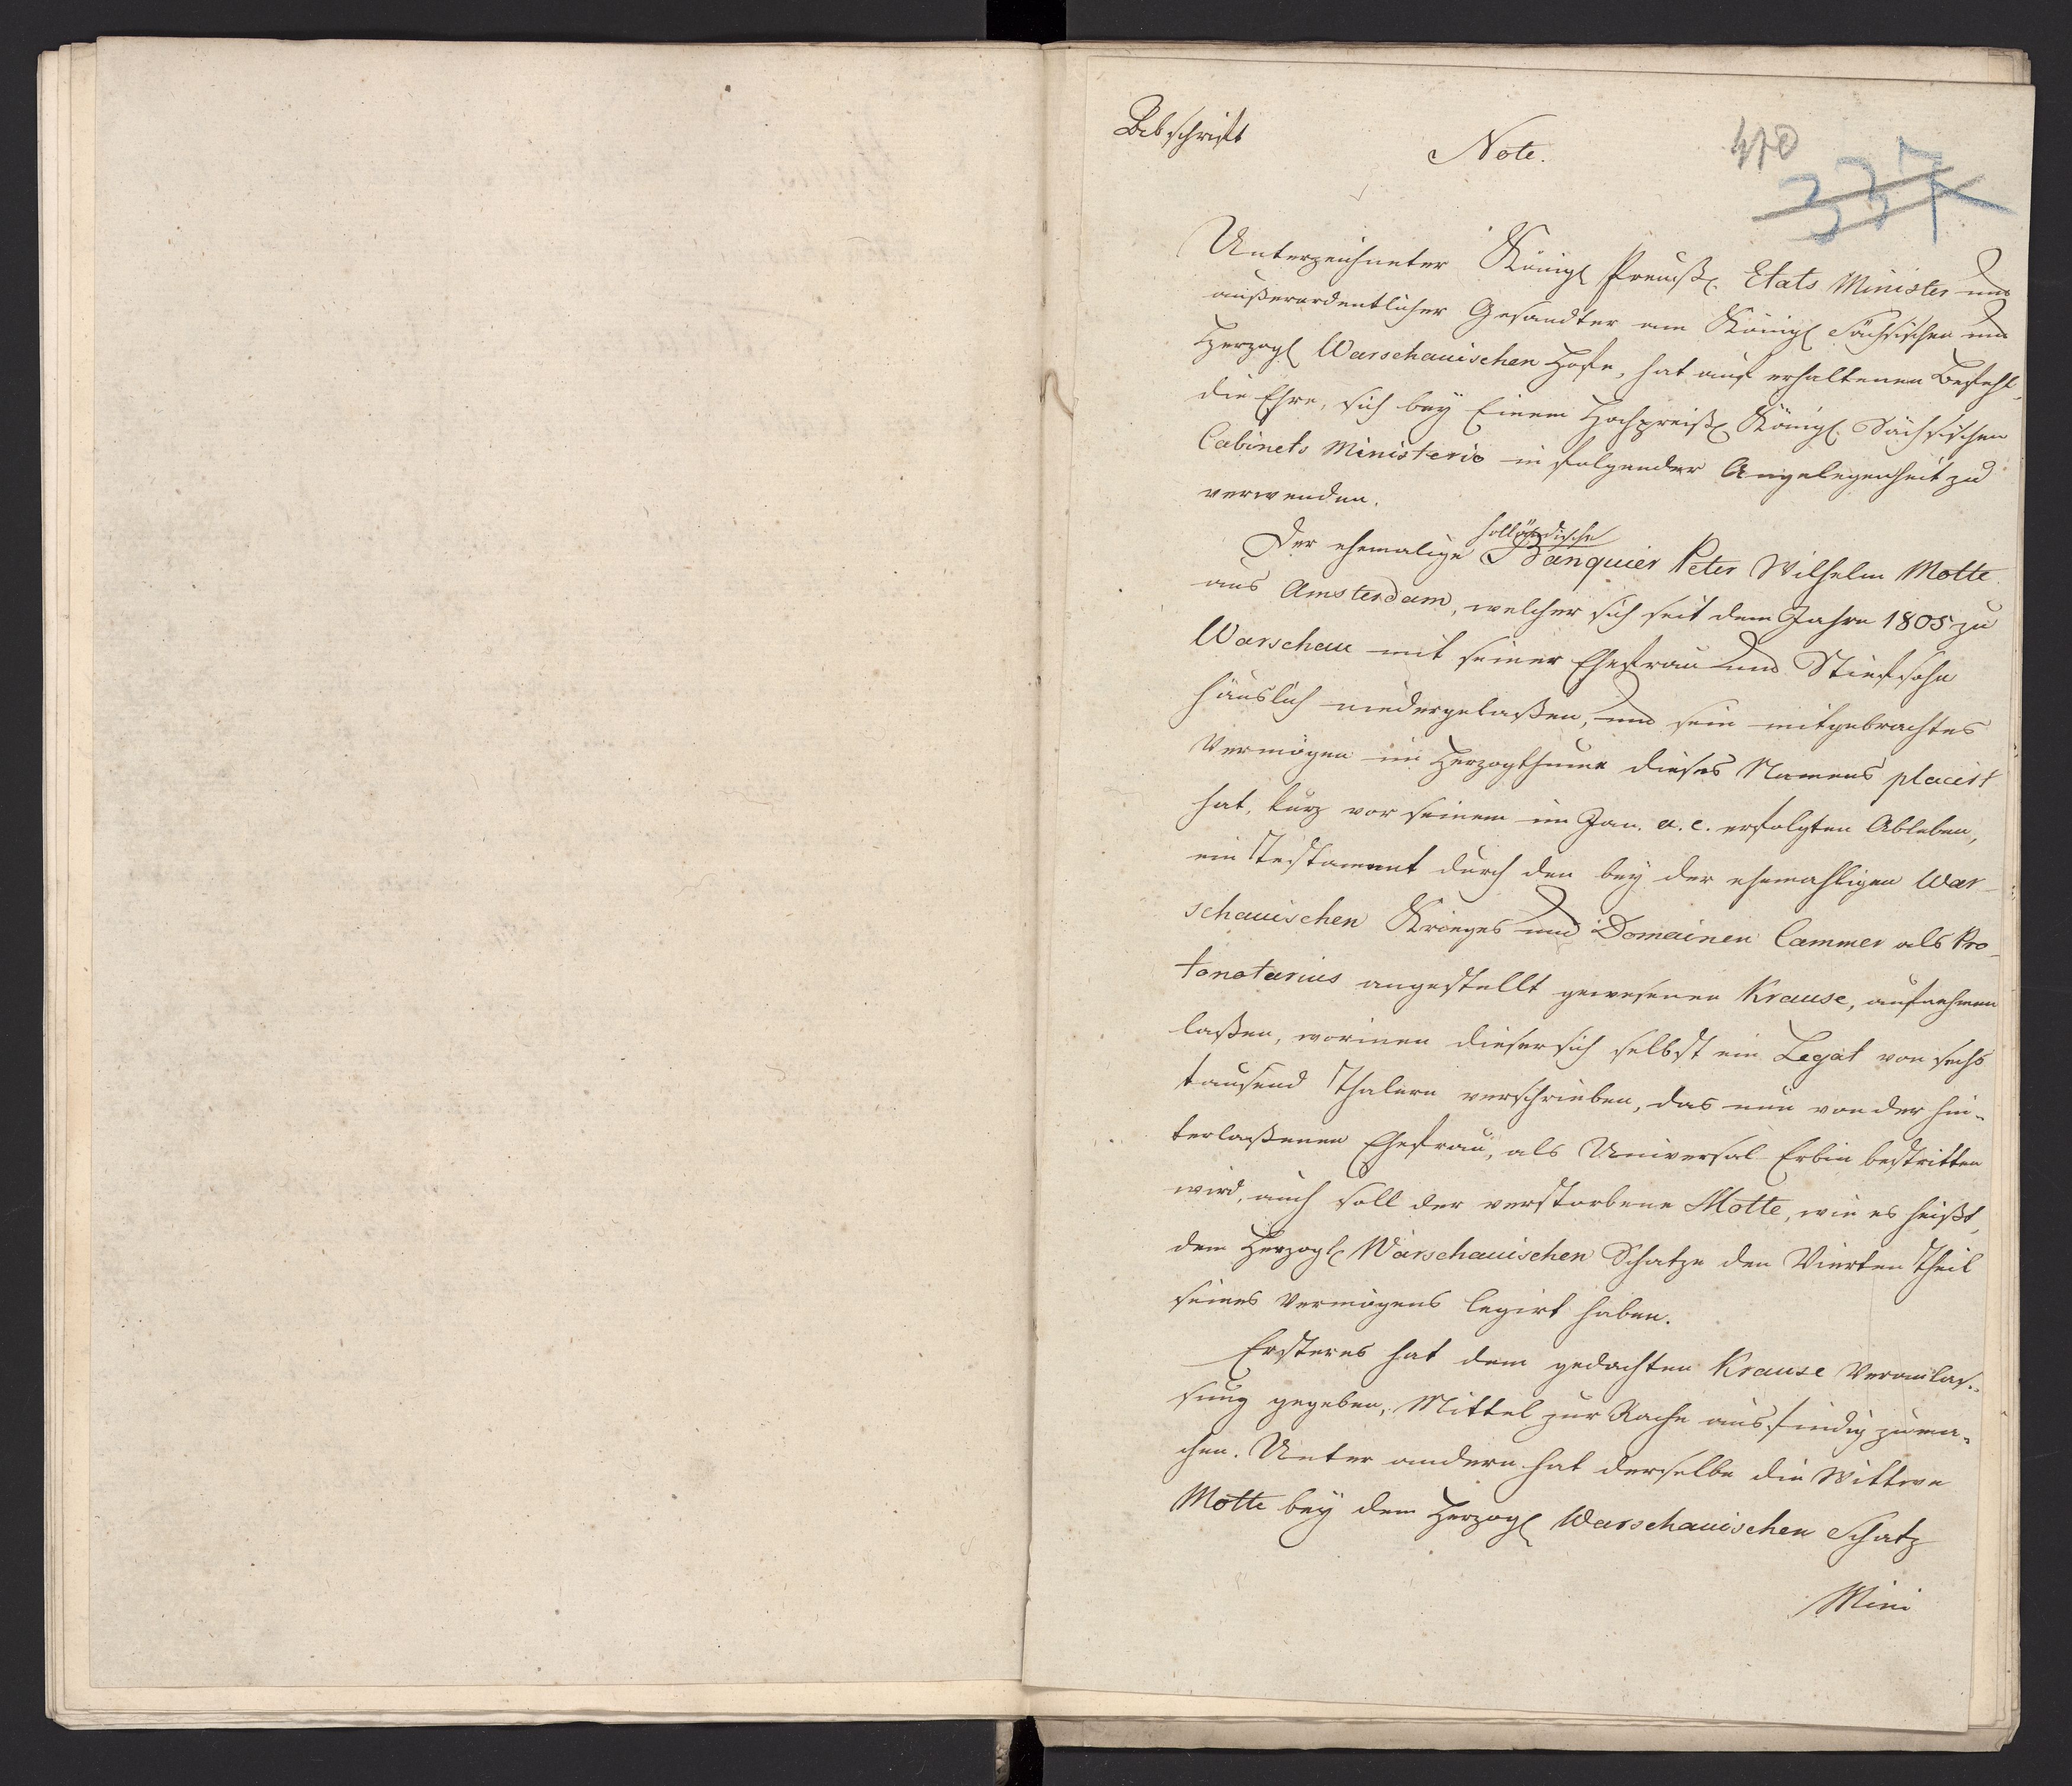 Abschrift
Note.
470
337
Unterzeichneter Königl Preuß. Etats Minister und
außerordentlicher Gesandter am Königl Sächsischen und
Herzogl Warschauischen Hofe, hat auf erhaltenen Befehl
die Ehre, sich bey Einem Hochpreißl Königl. Sächsischen
Cabinets Ministerio in folgender Angelegenheit zu
verwenden.
holländische
Der ehemalige Banquier Peter Wilhelm Motte
aus Amsterdam, welcher sich seit dem Jahre 1805 zu
Warschau mit seiner Ehefrau und Stiefsohn
häuslich niedergelaßen, und sein mitgebrachtes
Vermögen im Herzogthume dieses Namens placirt
hat, kurz vor seinem im Jan. a. c. erfolgten Ableben,
ein Testament durch den bey der ehemahligen War-
schauischen Krieges und Domainen Cammer als Pro-
tonotarius angestellt gewesenen Krause, aufnehmen
laßen, worinnen dieser sich selbst ein Legat von sechs
tausend Thalern verschrieben, das nun von der hin-
terlaßenen Ehefrau, als Universal Erbin bestritten
wird, auch soll der verstorbene Motte, wie es heißt,
dem Herzogl Warschauischen Schatze den Vierten Theil
seines Vermögens legirt haben.
Ersteres hat dem gedachten Krause Veranlas-
sung gegeben, Mittel zur Rache ausfindig zu ma-
chen. Unter andern hat derselbe die Wittwe
Motte bey dem Herzogl Warschauischen Schatz
Mini